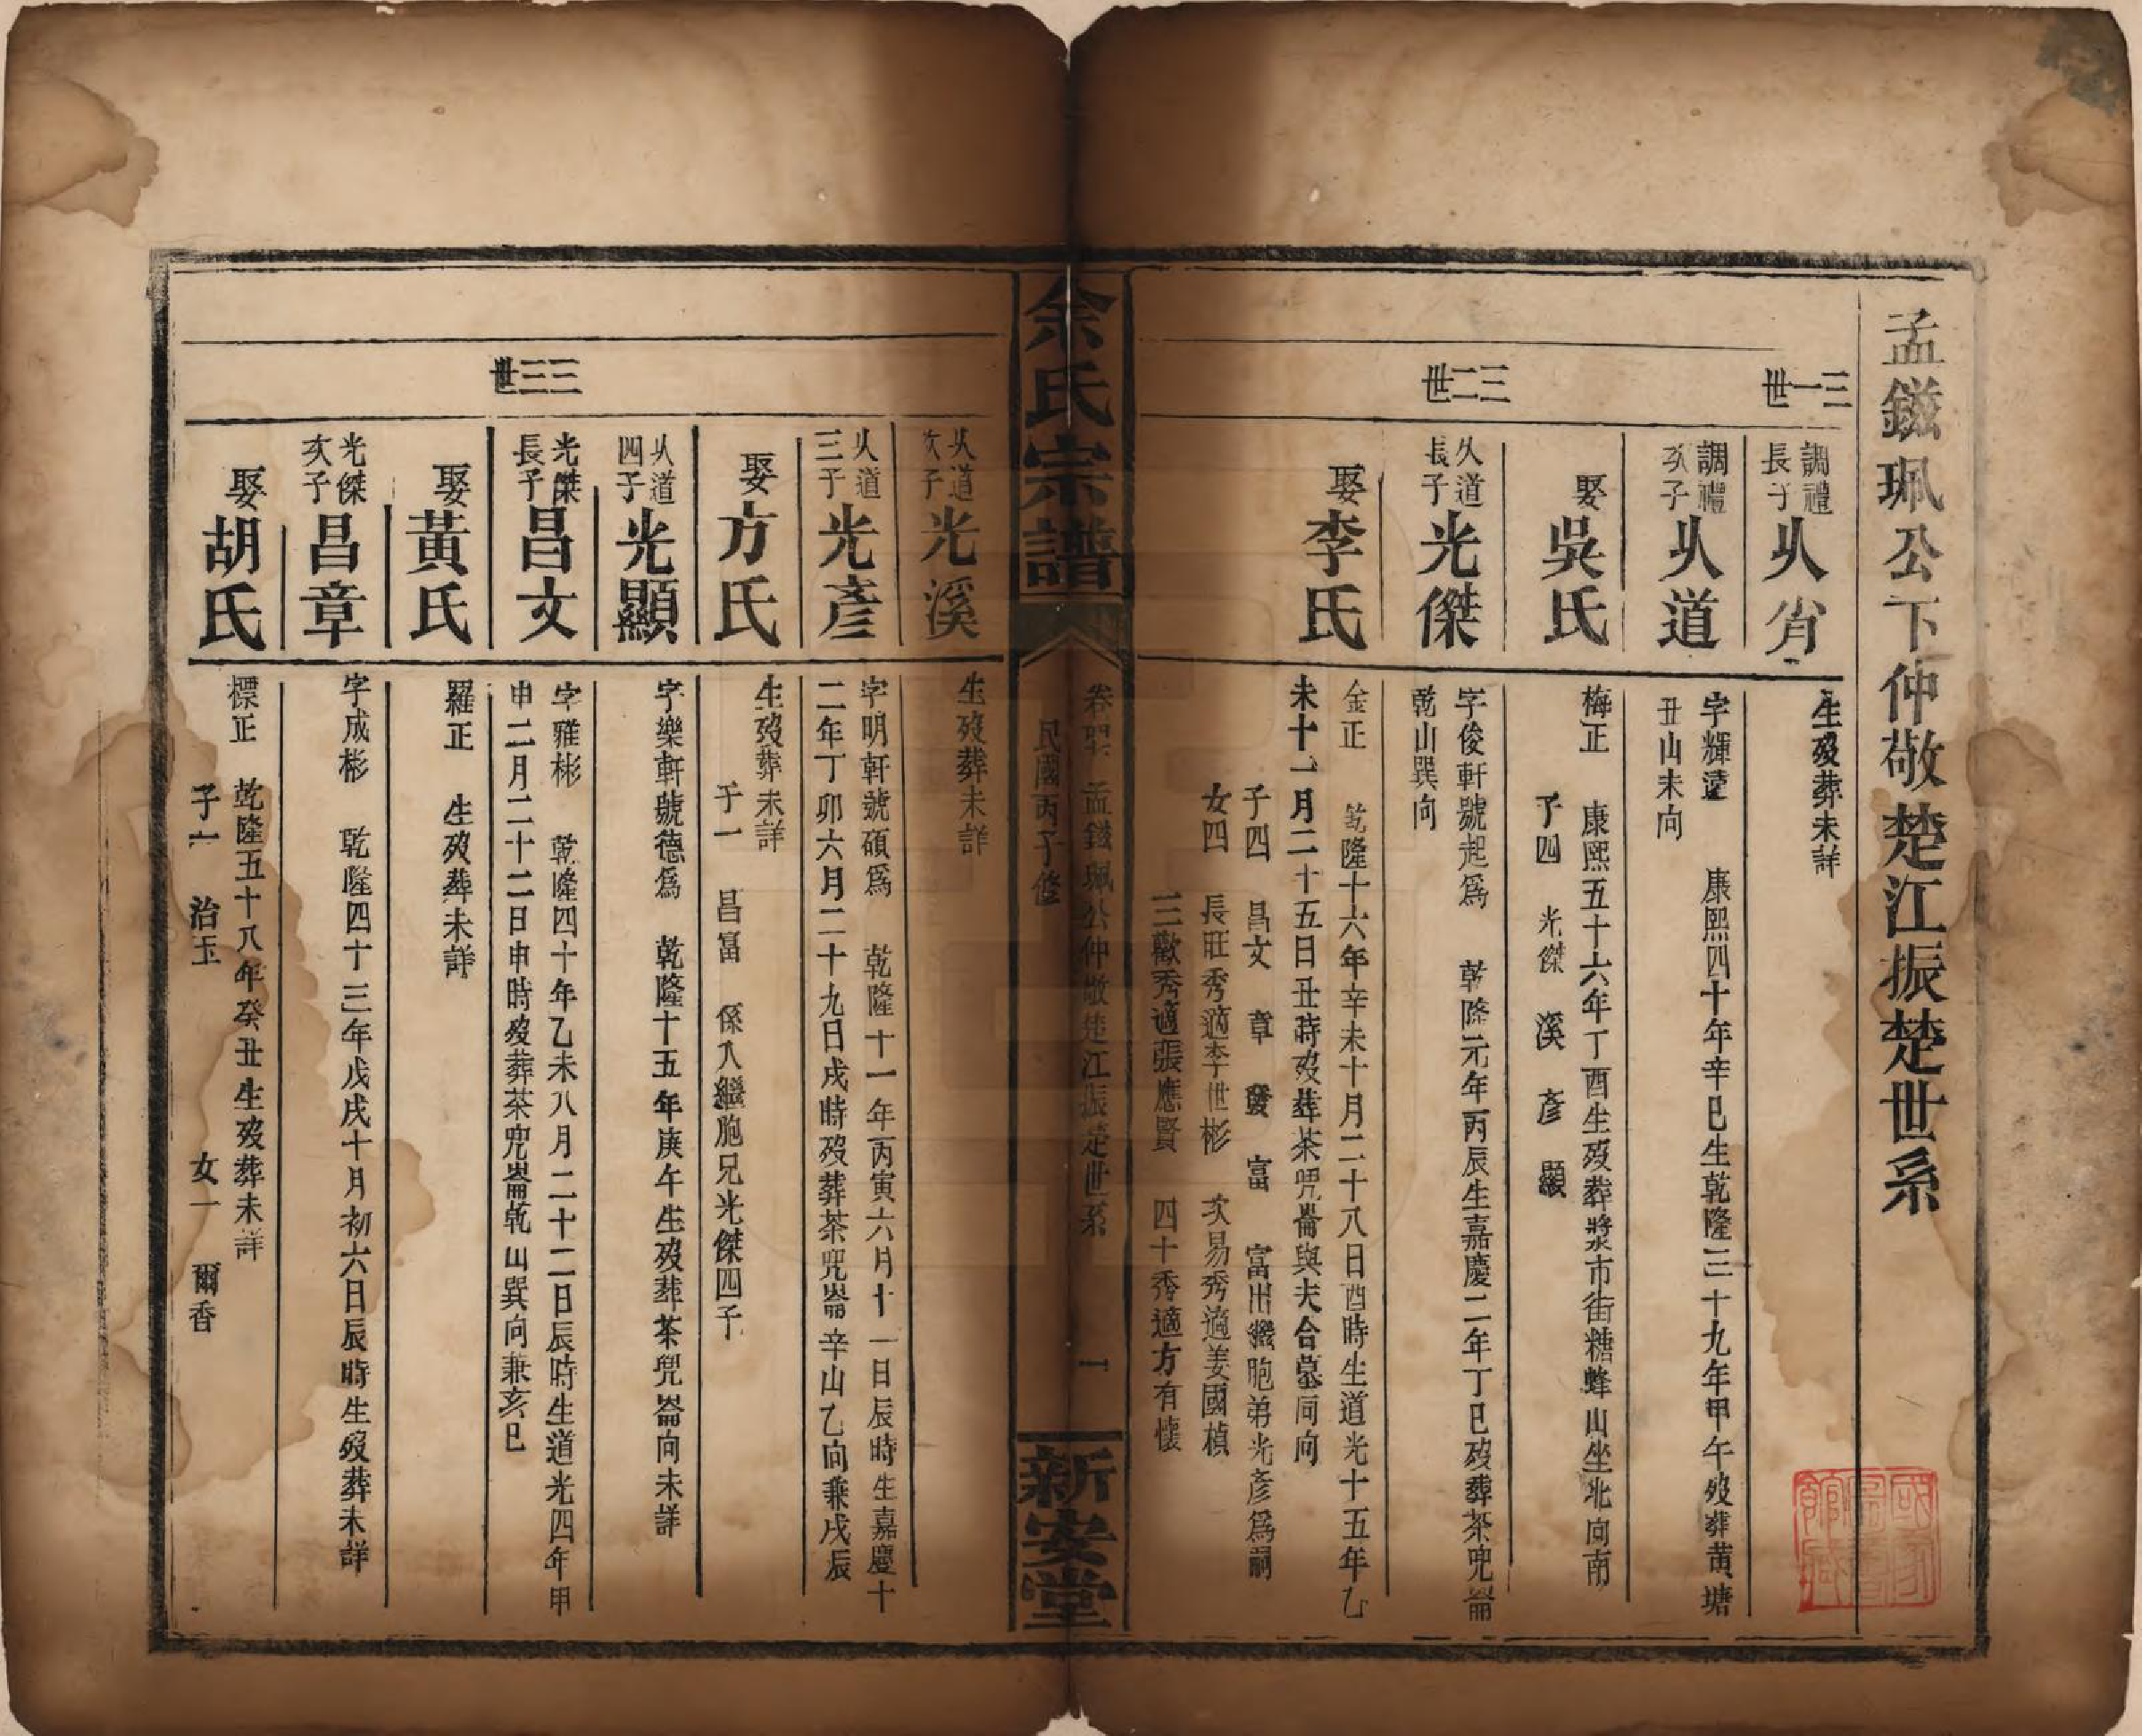 孟鎡珮公下仲敬楚江振楚世系
三一世
調禮長子
从省
生歿葬未詳
調禮次子
从道
字輝遠 康熙四十年辛巳生乾隆三十九年甲午歿葬黄塘
丑山未向
娶吳氏
梅正 康熙五十六年丁酉生歿葬漿市街糖蜂山坐北向南
子四 光傑 溪 彥 顯
三二世
从道長子
光傑
字俊軒號起爲 乾隆元年丙辰生嘉慶二年丁巳歿葬茶兜崙
乾山巽向
娶李氏
金正 乾隆十六年辛未十月二十八日酉時生道光十五年乙
未十一月二十五日丑時歿葬茶兜崙與夫合墓同向
子四 昌文 章 發 富 富出繼胞弟光彥爲嗣
女四 長旺秀適李世彬 次易秀適姜國楨
三歡秀適張應賢 四十秀適方有懷
余氏宗譜
孟鎡珮公仲敬楚江振楚世系
一
民國丙子修
新安堂
从道次子
光溪
生歿葬未詳
从道三子
光彥
字明軒號碩爲 乾隆十一年丙寅六月十一日辰時生嘉慶十
二年丁卯六月二十九日戌時歿葬茶兜崙辛山乙向兼戌辰
娶方氏
生歿葬未詳
子一 昌富 係入繼胞兄光傑四子
从道四子
光顯
字樂軒號德爲 乾隆十五年庚午生歿葬茶兜崙向未詳
三三世
光傑長子
昌文
字雅彬 乾隆四十年乙未八月二十二日辰時生道光四年甲
申二月二十二日申時歿葬茶兜崙乾山巽向兼亥巳
娶黃氏
羅正 生歿葬未詳
光傑次子
昌章
字成彬 乾隆四十三年戊戌十月初六日辰時生歿葬未詳
娶胡氏
標正 乾隆五十八年癸丑生歿葬未詳
子一 治玉 女一 爾香